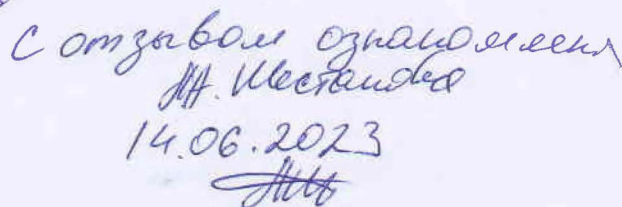 С отзывом ознакомлена
Шестакова
14.06.2023